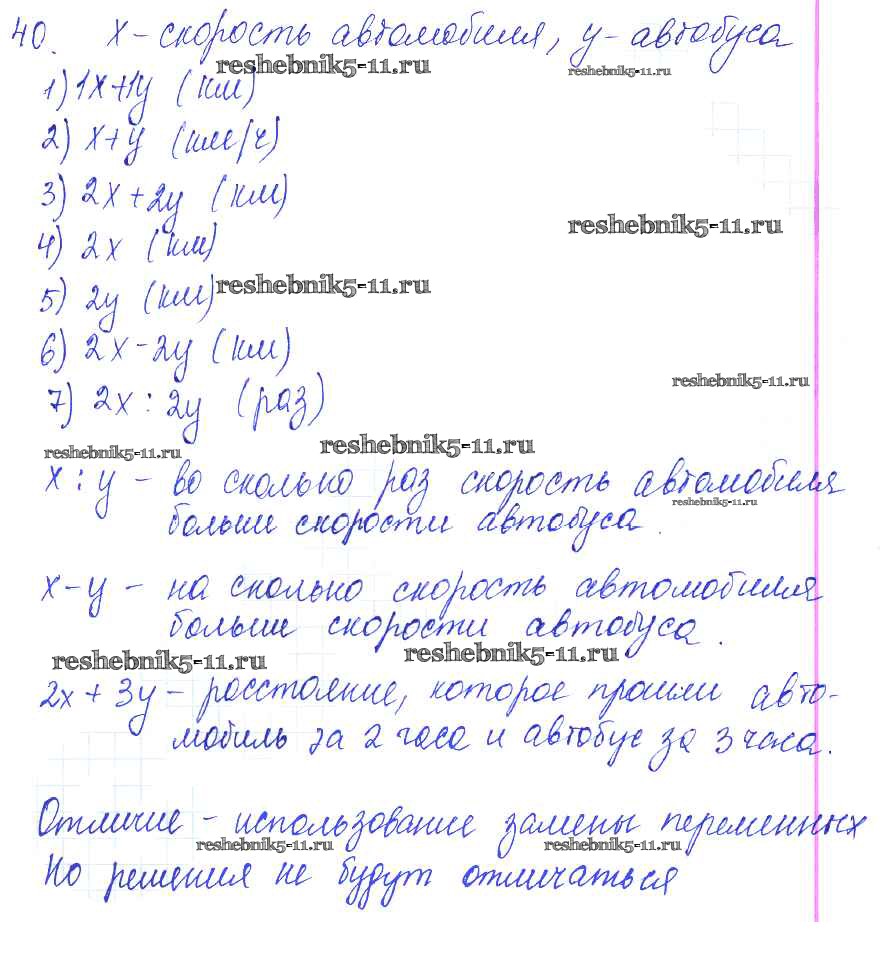 40. х - скорость автомобиля, у - автобуса
reshebnik5-11.ru reshebnik5-11.ru
1) 1х+1у (км)
2) х+у (км/ч)
3) 2х+2у (км)
reshebnik5-11.ru
4) 2х (км)
5) 2у (км) reshebnik5-11.ru
6) 2х-2у (км)
reshebnik5-11.ru
7) 2х : 2у (раз)
reshebnik5-11.ru reshebnik5-11.ru
х : у - во сколько раз скорость автомобиля
reshebnik5-11.ru
больше скорости автобуса
х-у - на сколько скорость автомобиля
больше скорости автобуса.
reshebnik5-11.ru reshebnik5-11.ru
2х + 3у - расстояние, которое прошли авто-
мобиль за 2 часа и автобус за 3 часа.
Отличие - использование замены переменных
reshebnik5-11.ru reshebnik5-11.ru
Но решения не будут отличаться